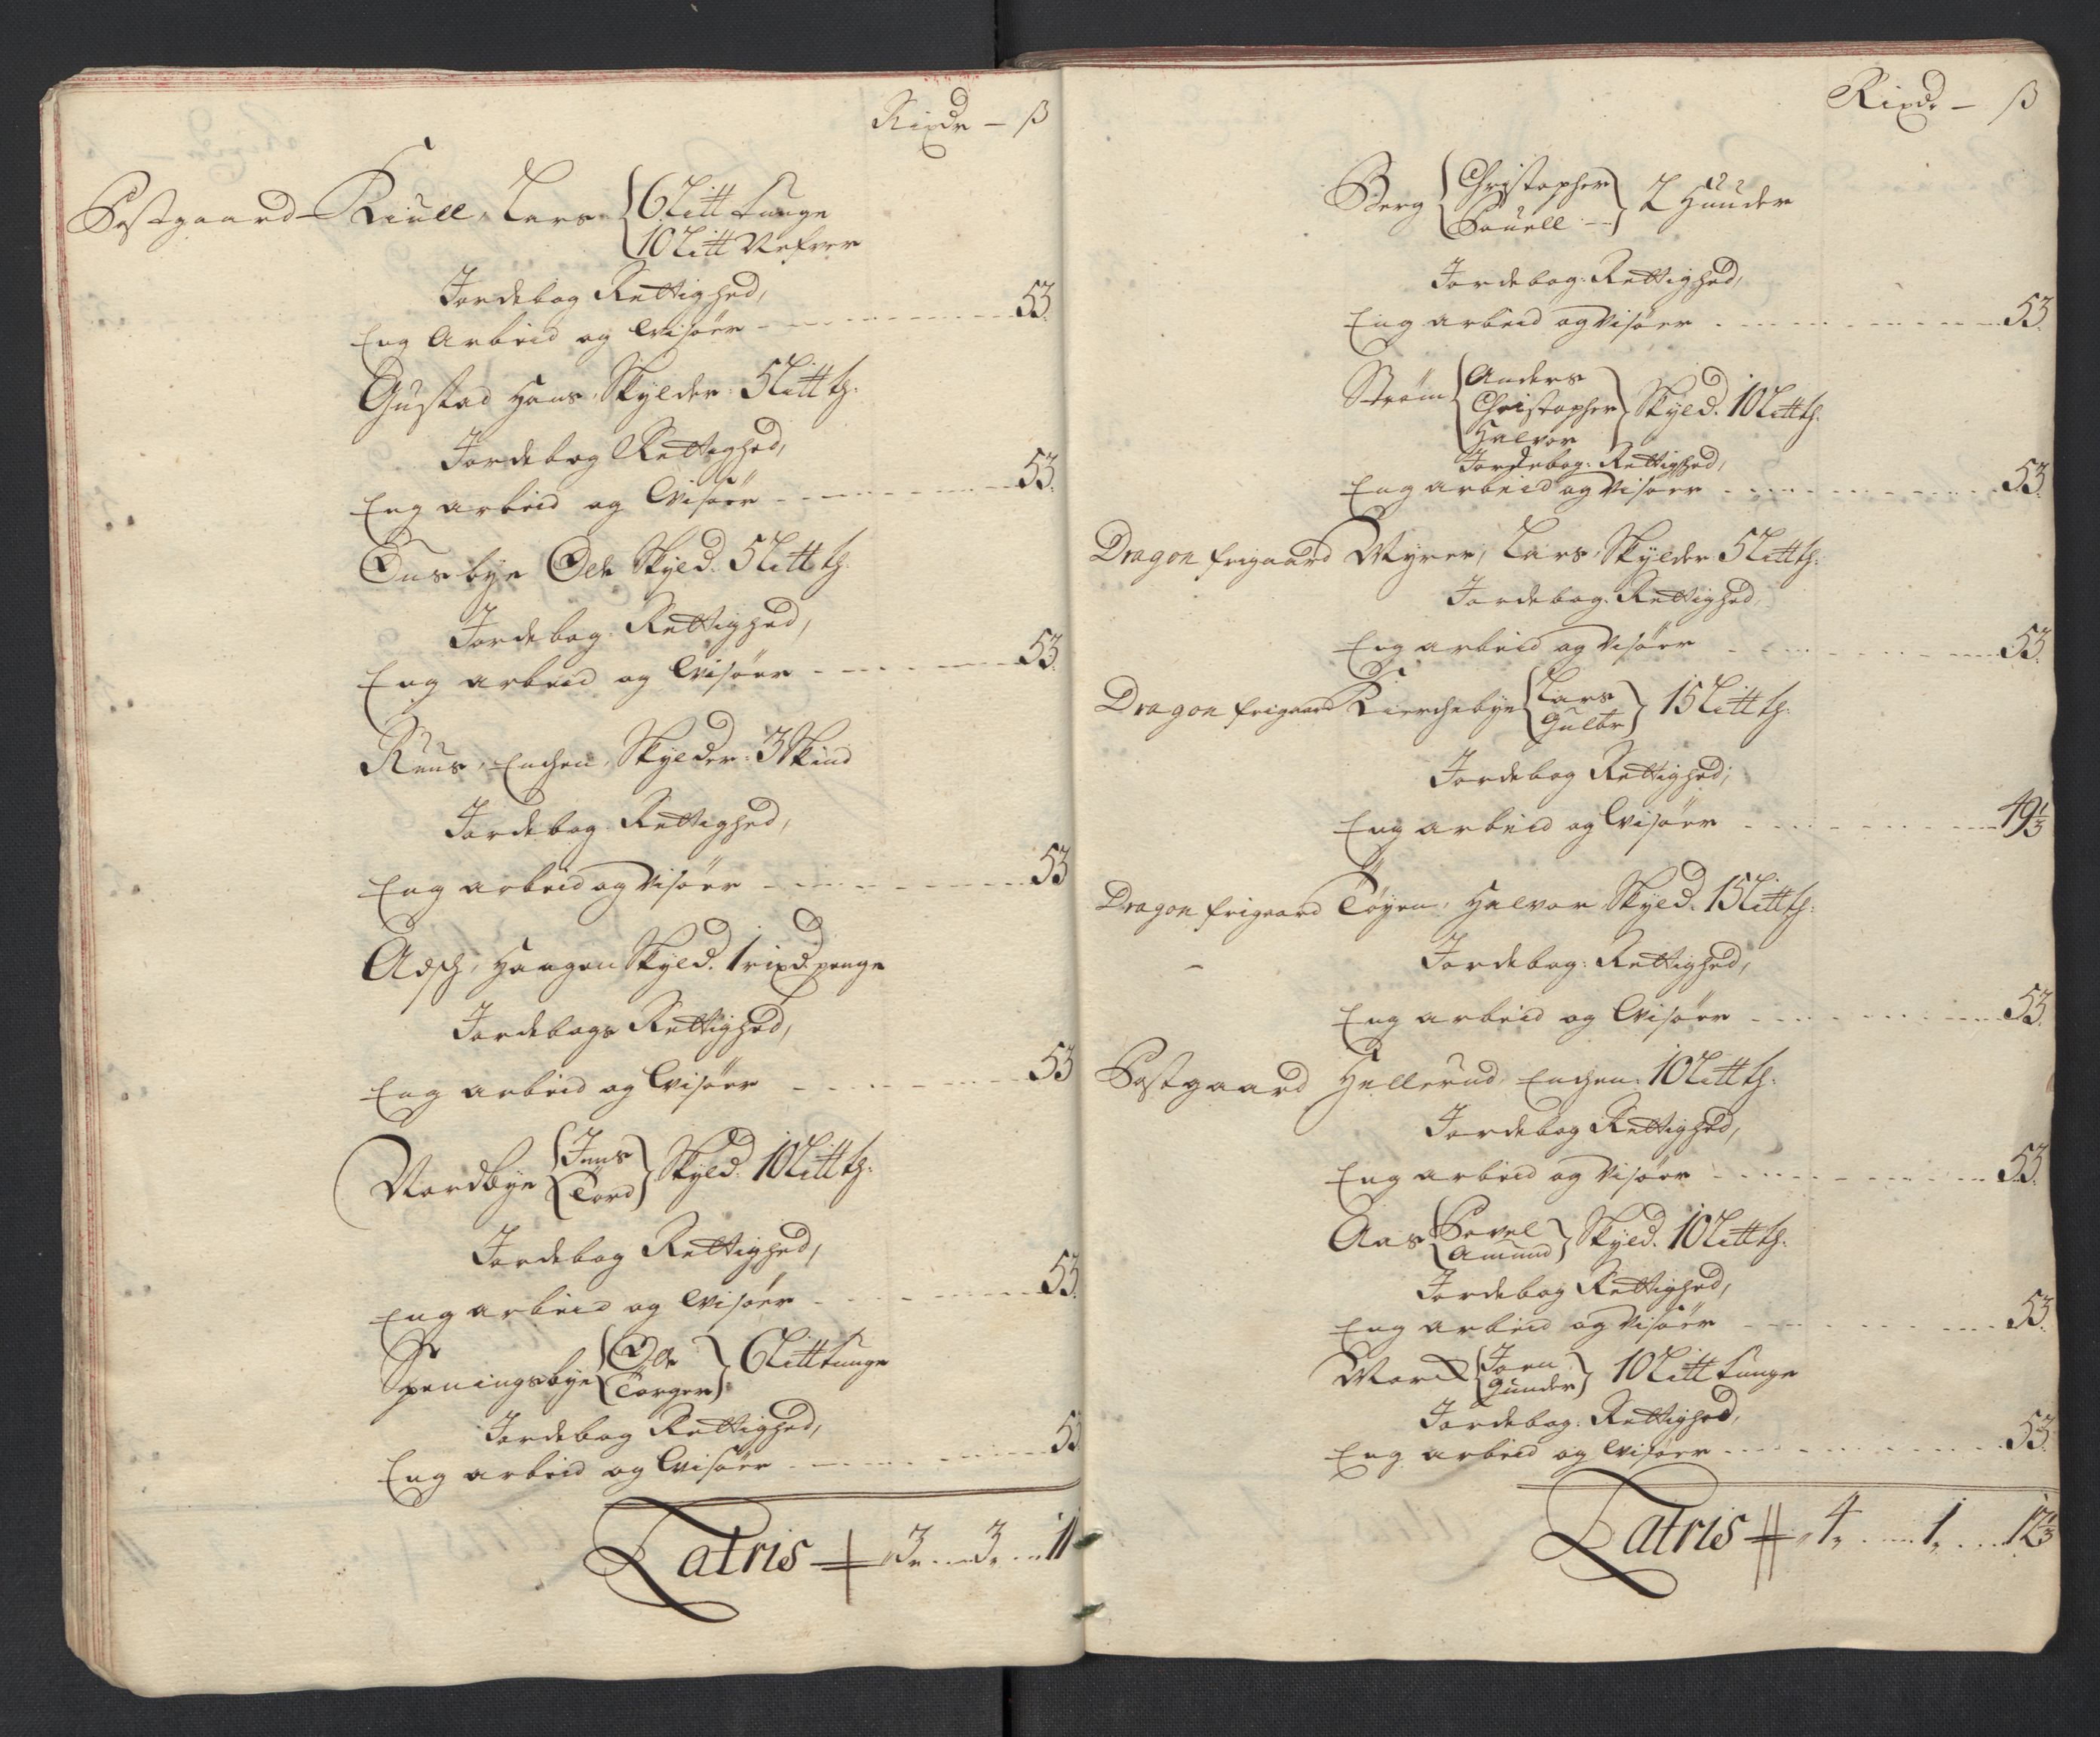 Rixdr — ß
Postgaard Kiull, Lars { 6 Litt tunge
10 Litt Nefver
Jordebog Rettighed,
Eng Arbeid og Visøer 53.
Gustad Hans, Skylder: 5 Litt tg:
Jordebog Rettighed,
Eng arbeid og Visøer 53.
Ousbye Ole Skyld. 5 Litt tg.
Jordebog Rettighed,
Eng arbeid og Visøer 53.
Ruus, Enchen, Skylder: 3 Skind
Jordebog Rettighed,
Eng arbeid og Visøer 53
Aasch, Haagen Skyld. 1 rixd. penge
Jordebogs Rettighed,
Eng arbeid og Visøer 53
Nordbye { Jens
Tord } Skyld. 10 Litt tg:
Jordebog Rettighed,
Eng arbeid og Visøer 53.
Speningsbye { Ole
Torger } 6 Litt tunge
Jordebog Rettighed,
Eng arbeid og Visøer 53
Latris 3 . 3 . 11
Rixdr — ß
Berg { Christopher
Pouell } 2 Huuder
Jordebog: Rettighed,
Eng arbeid og Visøer 53.
Strøm { Anders
Christopher
Halvor } Skyld. 10 Litt tg.
Jordebog: Rettighed,
Eng arbeid og Visøer 53.
Dragon frigaard Myrer, Lars, Skylder 5 Litt tg:
Jordebog: Rettighed,
Eng arbeid og Visøer 53.
Dragon frigaard Kierchebye { Lars
Gulbr } 15 Litt tg.
Jordebog Rettighed,
Eng arbeid og Visøer 49 1/3
Dragon frigaard Tøyen, Halvor Skyld. 15 Litt tg:
Jordebog: Rettighed,
Eng arbeid og Visøer 53.
Postgaard Hellerud, Enchen: 10 Litt tg:
Jordebog Rettighed,
Eng arbeid og Visøer 53.
Aas { Povel
Amund } Skyld. 10 Litt tg:
Jordebog Rettighed,
Eng arbeid og Visøer 53.
Mork { Joen
Gunder } 10 Litt tunge
Jordebog: Rettighed,
Eng arbeid og Visøer 53.
Latris 4 . 1 . 12 1/3